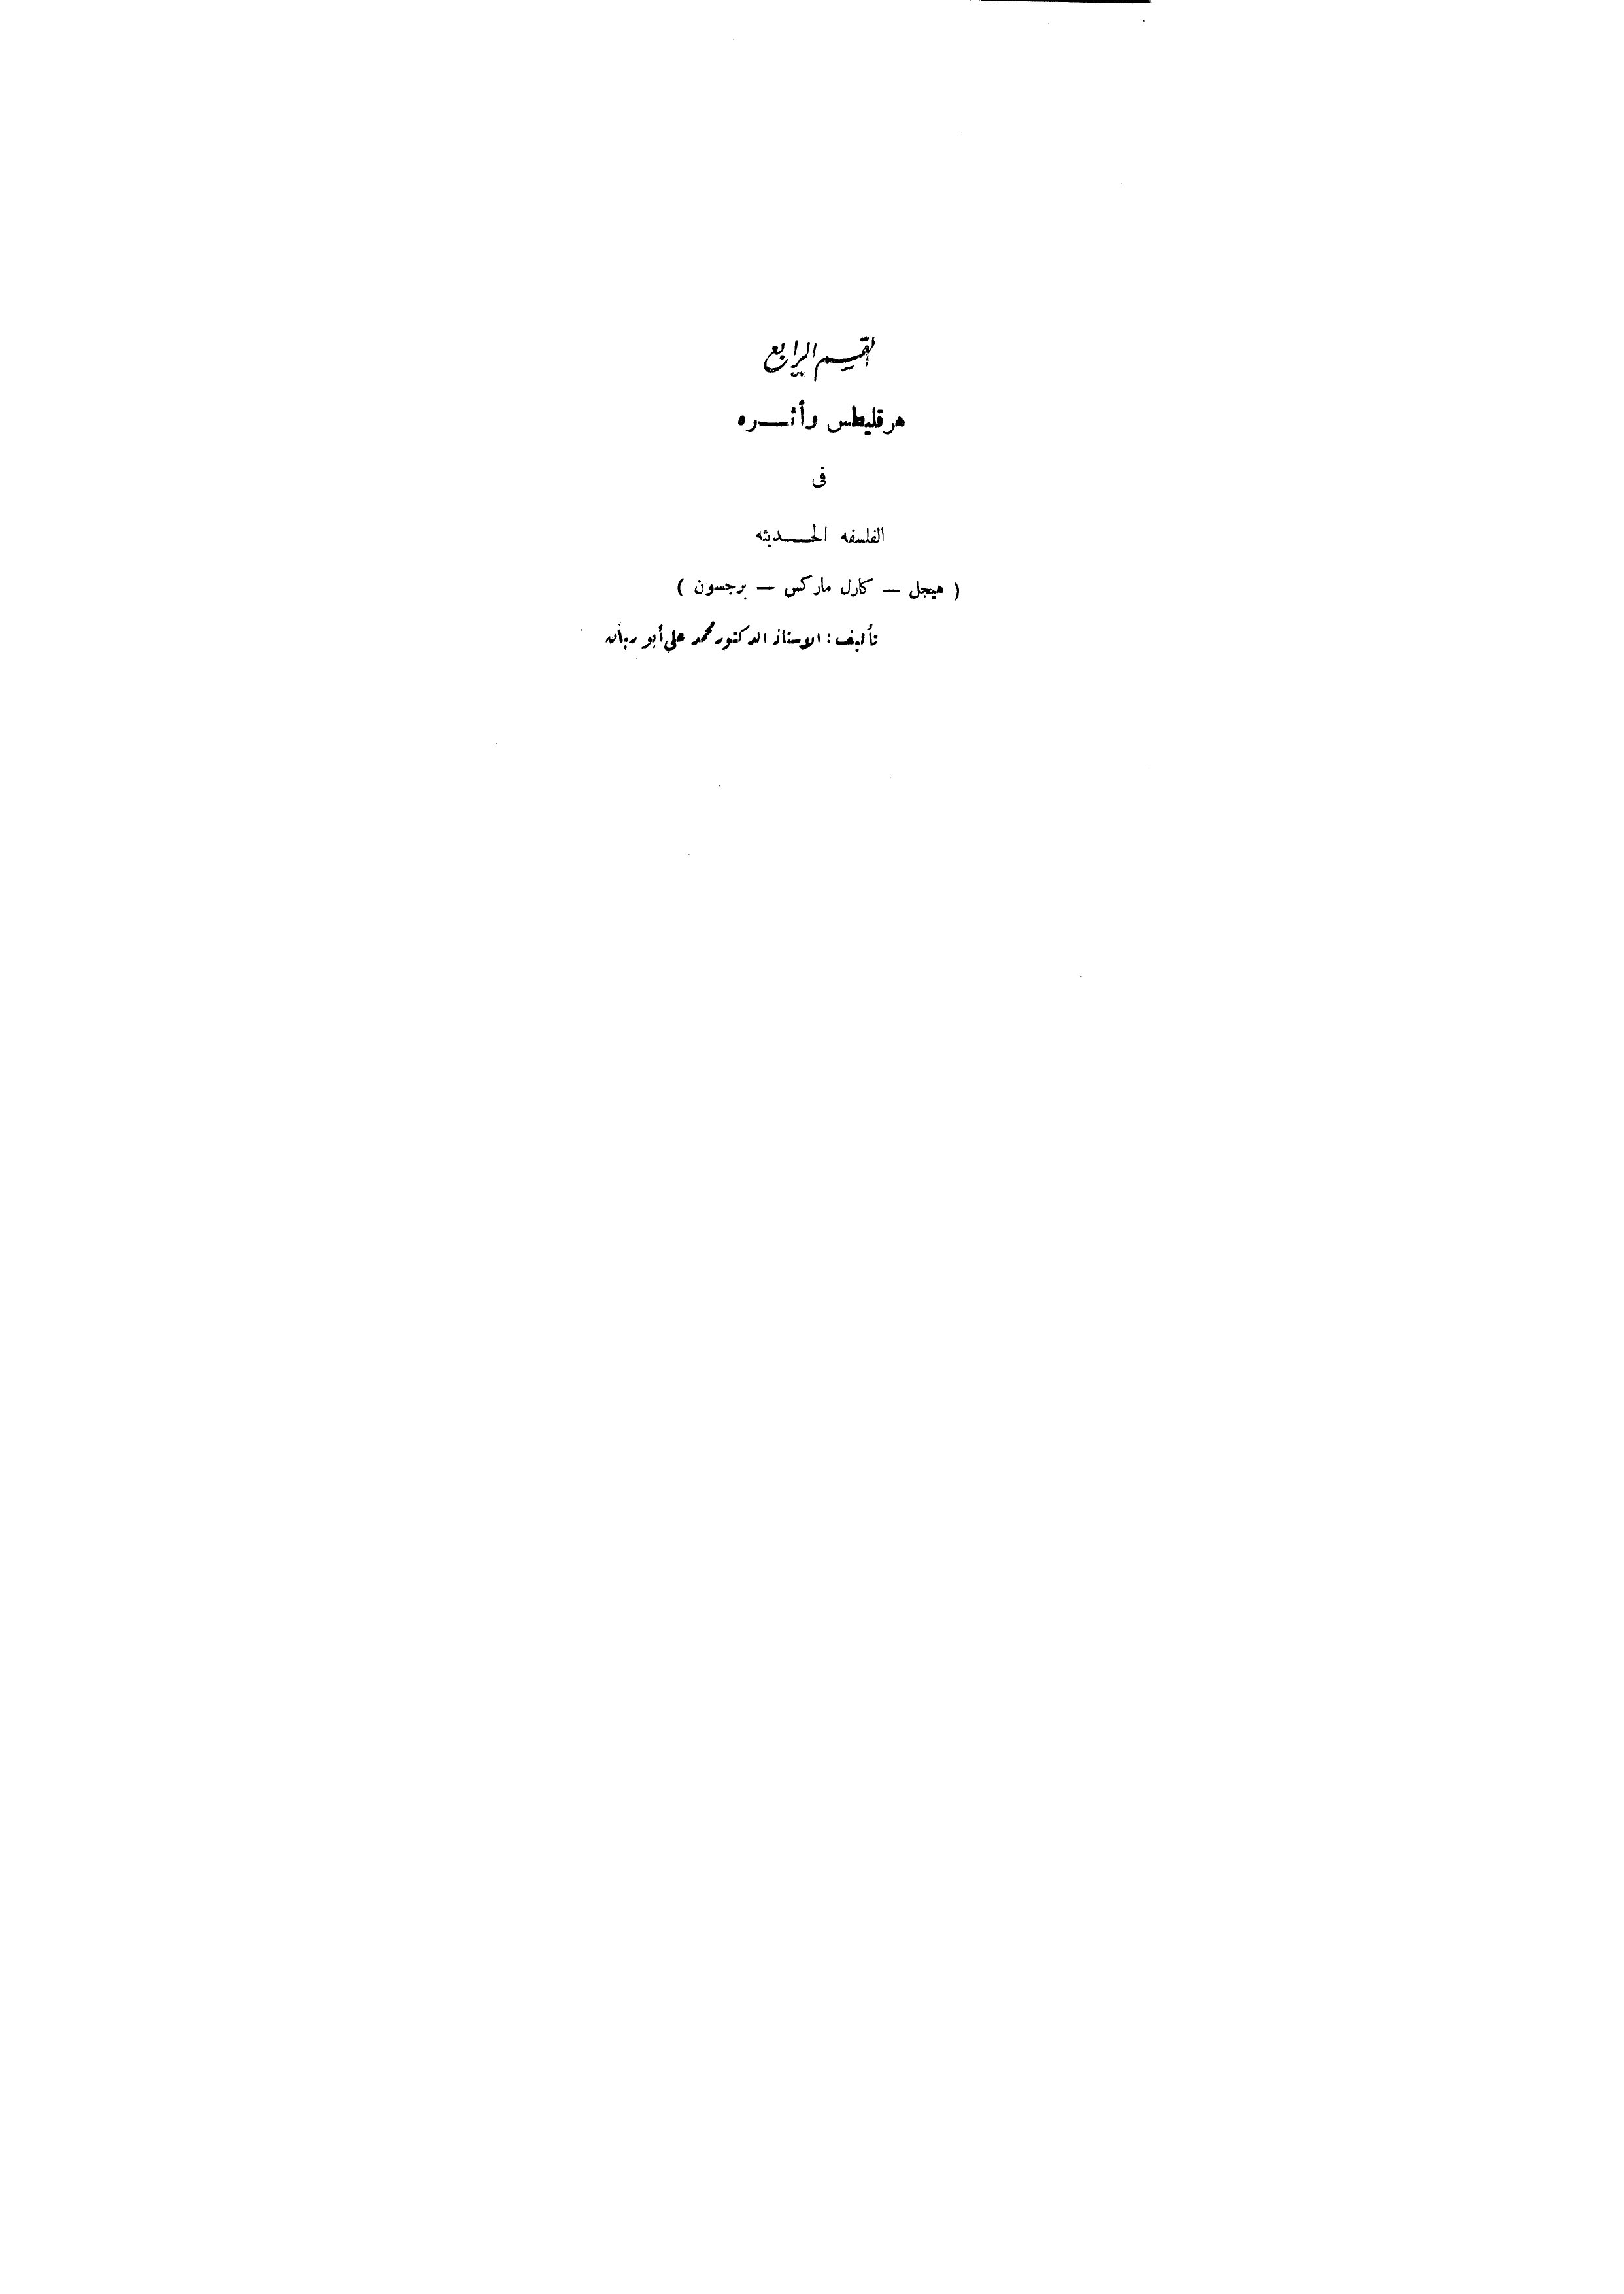 القسم الرابع
هرقليطس وأثـــره
فى
الفلسفه الحـــديثه
( هيجل — كارل ماركس — برجسون )
تأليف : الاستاذ الدكتور محمد على أبو ريان